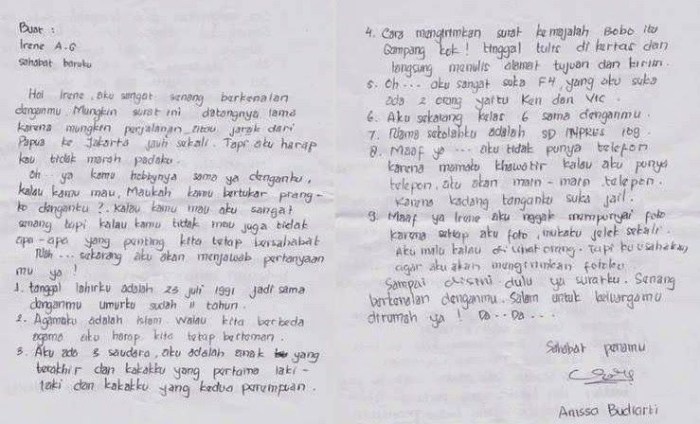 Buat :
Irene A.G
sahabat baruku
Hai Irene, aku sangat senang berkenalan
denganmu. Mungkin surat ini datangnya lama
karena mungkin perjalanan atau jarak dari
Papua ke Jakarta jauh sekali. Tapi aku harap
kau tidak marah padaku.
Oh .. ya kamu hobbynya sama ya denganku,
kalau kamu mau, Maukah kamu bertukar prang-
ko denganku ?. Kalau kamu mau aku sangat
senang tapi kalau kamu tidak mau juga tidak
apa-apa yang penting kita tetap bersahabat
Nah ... sekarang aku akan menjawab pertanyaan
mu ya !
1. tanggal lahirku adalah 23 juli 1991 jadi sama
denganmu umurku sudah 11 tahun.
2. Agamaku adalah islam walau kita berbeda
agama aku harap kita tetap berteman.
3. Aku ada 3 saudara, aku adalah anak yang
terakhir dan kakakku yang pertama laki-
laki dan kakakku yang kedua perempuan.
4. Cara mengirimkan surat ke majalah Bobo itu
Gampang kok ! tinggal tulis di kertas dan
langsung menulis alamat tujuan dan kirim.
5. Oh ... aku sangat suka F4, yang aku suka
ada 2 orang yaitu Ken dan Vic.
6. Aku sekarang kelas 6 sama denganmu.
7. Nama sekolahku adalah SD INPRES 109.
8. Maaf ya ... aku tidak punya telepon
karena mamaku khawatir kalau aku punya
telepon, aku akan main-main telepon.
karena kadang tanganku suka jail.
9. Maaf ya Irene aku nggak mempunyai foto
karena setiap aku foto, mukaku jelek sekali.
aku malu kalau di lihat orang. Tapi
agar aku akan mengirimkan fotoku.
Sampai disini dulu ya suratku. Senang
berkenalan denganmu. Salam untuk keluargamu
dirumah ya ! Da .. Da ...
Sahabat penamu
Anissa Budiarti